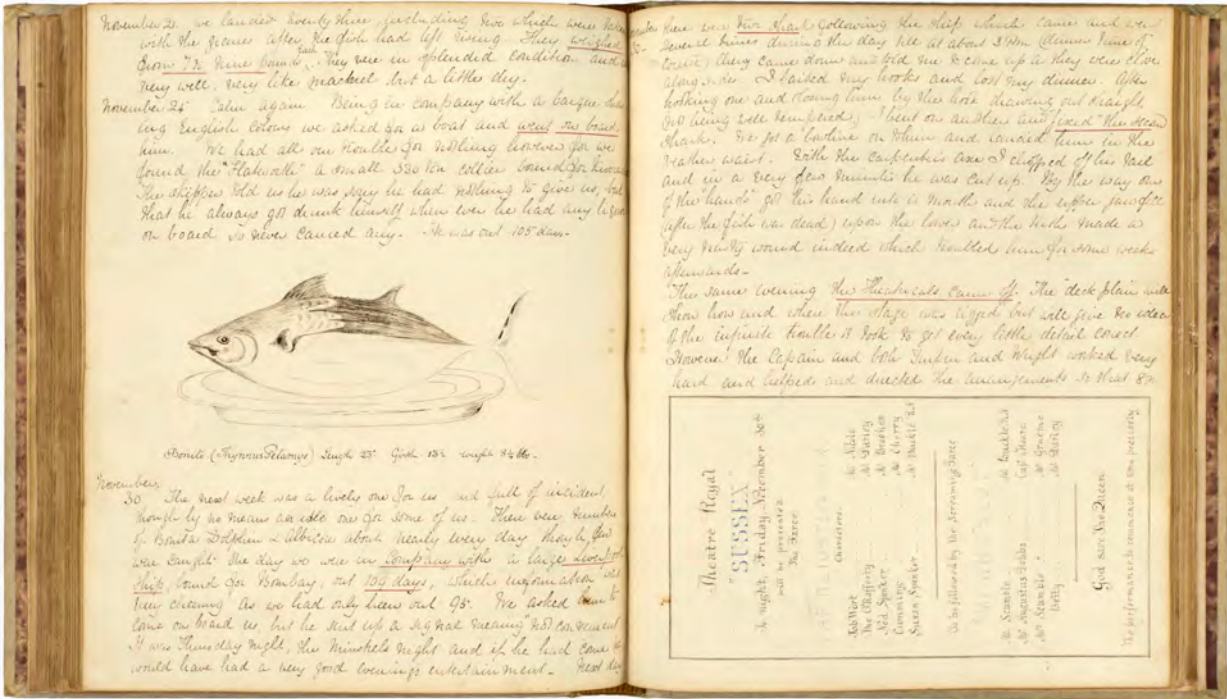 November 21. we landed twenty three, including two which were taken
with the graines after the fish had left rising. They weighed
from 7½ to nine pounds each. They were in splendid condition and
very well, very like mackerel but a little dry.
November 25 Calm again Being in company with a barque
ing English colours we asked for a boat and went on board
him. We had all our trouble for nothing however for we
found the "Flatworth" a small 530 ton collier bound for
The skipper told us he was sorry he had nothing to give us, but
that he always got drunk himself when ever he had any liquor
on board so never carried any. He was out 105 days.
Bonito (Thynnus Pelamys) Length 25" Girth weight 8½ lbs.
November
30. The next week was a lively one for us and full of incident,
though by no means an idle one for some of us. There were numbers
of Bonita Dolphin & Albicore about nearly every day though few
were caught. One day we were in company with a large Liverpool
ship, bound for Bombay, out 104 days, which information was
very cheering as we had only been out 95. We asked him to
come on board us, but he sent up a signal meaning "not convenient"
It was Thursday night, the Minstrels night and if he had come
would have had a very good evenings entertainment. Next day
there were two shark following the ship which came and went
30. several times during the day till at about 3 PM (dinner time of
course) they came down and told me to come up as they were close
along side. I baited my hooks and lost my dinner. After
hooking one and losing him by the hook drawing out straight
(not being well tempered,) I bent on another and "fixed" the second
shark. We got a bowline on him and landed him in the
weather waist. With the carpenters axe I chopped off his tail
and in a very few minutes he was cut up. By the way one
of the "hands" got his hand into a mouth and the upper jaw fell
(after the fish was dead) upon the lower and the teeth made a
very nasty wound indeed which troubled him for some weeks
afterwards.
The same evening the Theatricals came off. The "deck plain" will
show how and where the stage was rigged but will give no idea
of the infinite trouble it took to get every little detail correct.
However the Captain and both Turpin and Wright worked very
hard and helped and directed the arrangements so that 8
Theatre Royal
"SUSSEX"
To night, Friday November 30th
will be presented
The Farce
Characters.
Job Wort Mr Noble
The O'Rafferty Mr Darley
Ned Spanker Mr Brookes
Cummings Mr Cherry
Susan Spanker
To be followed by the Screaming Farce
Mr Scumble
Mr Augustus Jobbs
Mrs Scumble Mr Graeme
Betty Mr Darley
God save the Queen
The performance to commence at 8 PM precisely